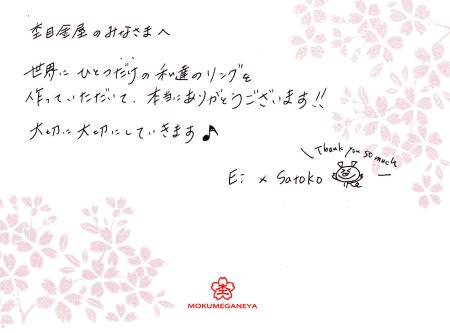 杢目金屋のみなさまへ
世界にひとつだけの私達のリングを
作っていただいて、本当にありがとうございます!!
大切に大切にしていきます♪
Thank you so much
Ei × Satoko
MOKUMEGANEYA